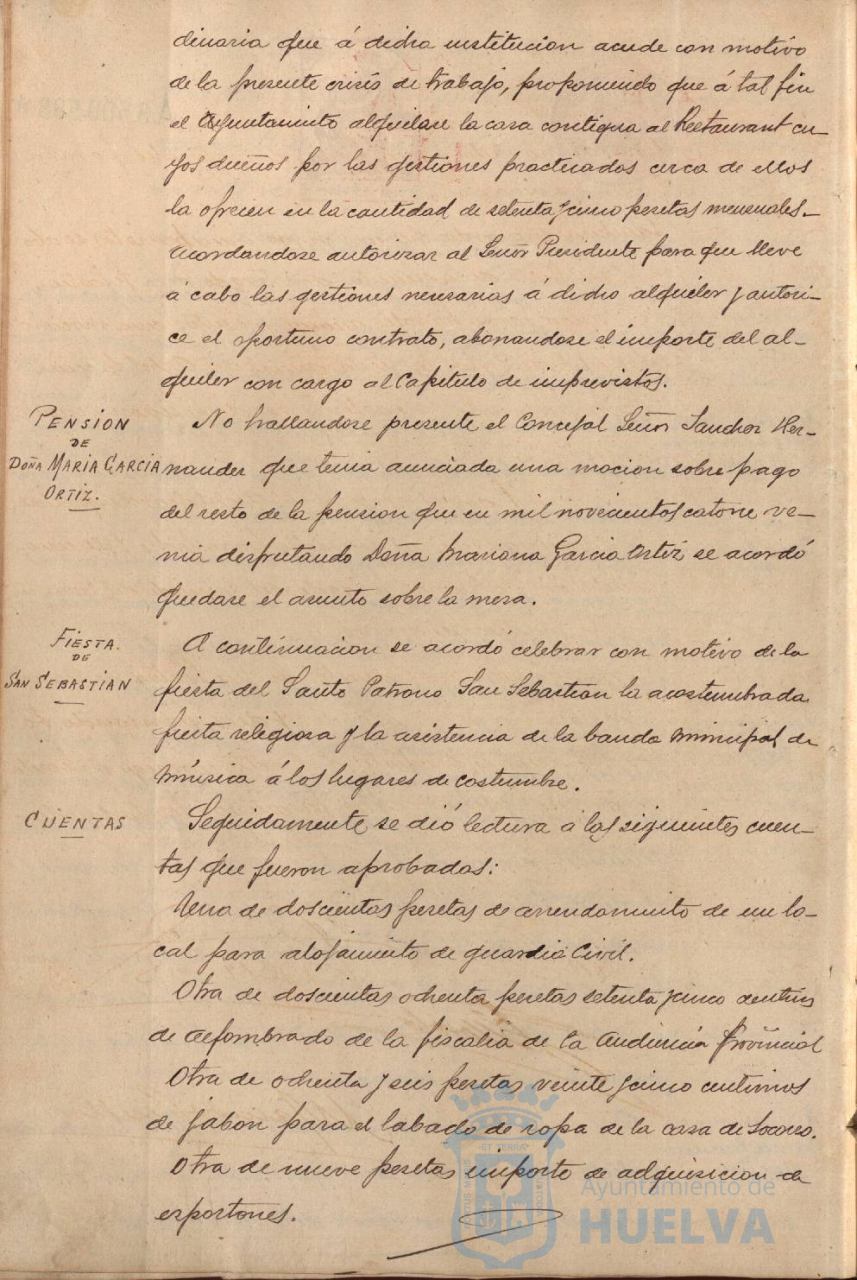 dinaria que á dicha institucion acude con motivo
de la presente crisis de trabajo, proponiendo que á tal fin
el Ayuntamiento alquilase la casa contigua al Restaurant cu-
yos dueños por las gestiones practicadas cerca de ellos
la ofrecen en la cantidad de setenta y cinco pesetas mensuales.-
Acordandose autorizar al Señor Presidente para que lleve
á cabo las gestiones necesarias á dicho alquiler y autori-
ce el oportuno contrato, abonandose el importe del al-
quiler con cargo al Capitulo de imprevistos.
PENSION
DE
DOÑA MARIA GARCIA
ORTIZ.
No hallandose presente el Concejal Señor Sanchez Her-
nandez que tenia anunciada una mocion sobre pago
del resto de la pension que en mil novecientos catorce ve-
nia disfrutando Doña Mariana Garcia Ortiz se acordó
quedase el asunto sobre la mesa.
FIESTA.
DE
SAN SEBASTIAN
A continuacion se acordó celebrar con motivo de la
fiesta del Santo Patrono San Sebastian la acostumbrada
fiesta religiosa y la asistencia de la banda municipal de
música á los lugares de costumbre.
CUENTAS
Seguidamente se dió lectura á las siguientes cuen-
tas que fueron aprobadas:
Una de doscientas pesetas de arrendamiento de un lo-
cal para alojamiento de guardia Civil.
Otra de doscientas ochenta pesetas setenta y cinco centimos
de alfombrado de la fiscalia de la Audiencia Provincial
Otra de ochenta y seis pesetas veinte y cinco centimos
de jabon para el labado de ropa de la casa de Socorro.
Otra de nueve pesetas importe de adquisicion de
esportones.
Ayuntamiento de
HUELVA